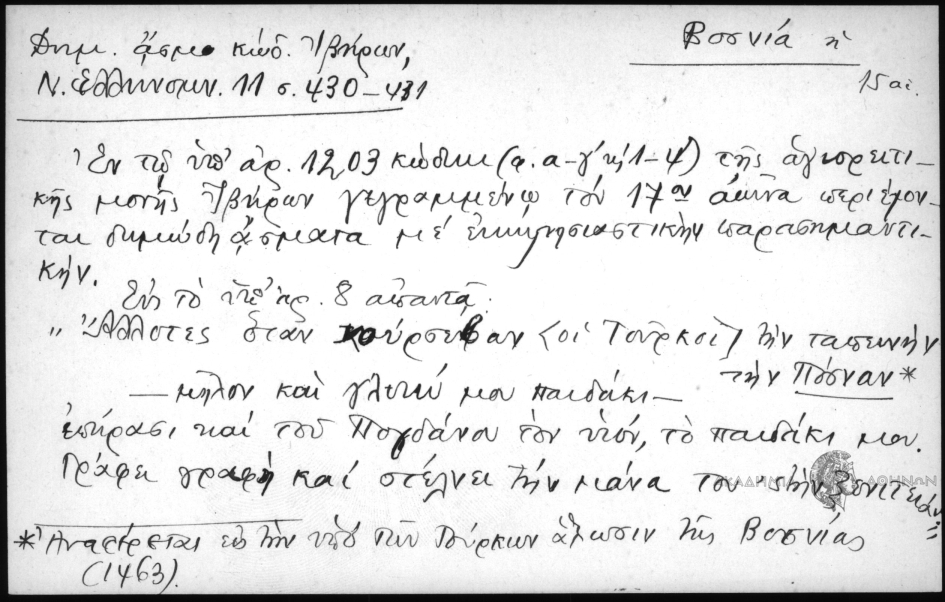 Δημ. ᾆσμα κώδ. Ἰβήρων,
Βοσνία ἡ
Ν. Ἑλληνομν. 11 σ. 430-431
15 αἰ.
Ἐν τῷ ὑπ' ἀρ. 1203 κώδικι (φ. α-γ' καὶ 1-4) τῆς ἁγιορειτι-
κῆς μονῆς Ἰβήρων γεγραμμένῳ τὸν 17ον αἰῶνα περιέχον-
ται δημώδη ᾄσματα μὲ ἐκκλησιαστικὴν παρασημαντι-
κήν.
Εἰς τὸ ὑπ' ἀρ. 8 ἀπαντᾷ:
" Ἄλλοτες ὅταν κούρσευαν <οἱ Τοῦρκοι> τὴν ταπεινὴν
τὴν Πόσναν*
— μῆλον καὶ γλυκύ μου παιδάκι —
ἐπήρασι καὶ τοῦ Πογδάνου τὸν υἱόν, τὸ παιδάκι μου.
Γράφει γραφὴ καὶ στέλνει τὴν μάνα του στὴν ξενιτειάν
ΑΚΑΔΗΜΙΑ ΑΘΗΝΩΝ
* Ἀναφέρεται εἰς τὴν ὑπὸ τῶν Τούρκων ἅλωσιν τῆς Βοσνίας
(1463).